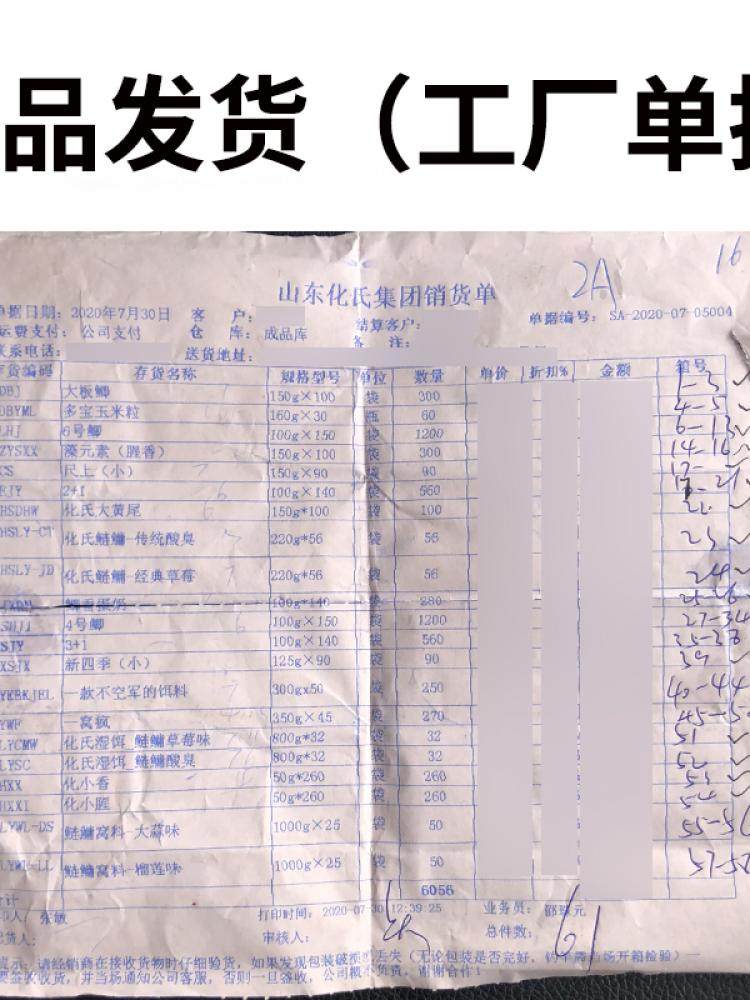 品发货（工厂单
16
2A
山东化氏集团销货单
单据日期：2020年7月30日 客 户： 结算客户： 单据编号：SA-2020-07-05004
运费支付：公司支付 仓 库：成品库 备 注：
联系电话： 送货地址：
存货编码 存货名称 规格型号 单位 数量 单价 折扣% 金额 箱号
DBJ 大板鲫 150g×100 袋 300 1-3
DBYML 多宝玉米粒 160g×30 瓶 60 4-5
LHJ 6号鲫 100g×150 袋 1200 6-13
ZYSXX 藻元素（腥香） 150g×100 袋 300 14-16
CS 尺上（小） 150g×90 袋 90 17
EJY 2+1 100g×140 袋 560 21
HSDHW 化氏大黄尾 150g*100 袋 100 22
HSLY-CT 化氏鲢鳙-传统酸臭 220g*56 袋 56 23
HSLY-JD 化氏鲢鳙-经典草莓 220g*56 袋 56 24
100g*140 袋 280 25-26
4号鲫 100g×150 袋 1200 27-34
SJY 3+1 100g×140 袋 560 35-38
XSJX 新四季（小） 125g×90 袋 90 39
YKBKJEL 一款不空军的饵料 300gx50 袋 250 40-44
YWF 一窝疯 350g×45 袋 270 45-5
LYCMW 化氏湿饵 鲢鳙草莓味 800g*32 袋 32 51
LYSC 化氏湿饵 鲢鳙酸臭 800g*32 袋 32 52
HXX 化小香 50g*260 袋 260 53
HXXI 化小腥 50g*260 袋 260 54
LYWL-DS 鲢鳙窝料-大蒜味 1000g×25 袋 50 55-56
LYWL-LL 鲢鳙窝料-榴莲味 1000g×25 袋 50 57-58
合计 6056
印人：张敏 打印时间：2020-07-30 12:39:25 业务员：邵 元
货人： 审核人： 总件数：61
提示：请经销商在接收货物时仔细验货，如果发现包装破损 丢失（无论包装是否完好， 场开箱检验）一
要签收货，并当场通知公司客服，否则一旦签收，公司概不负责，谢谢合作！